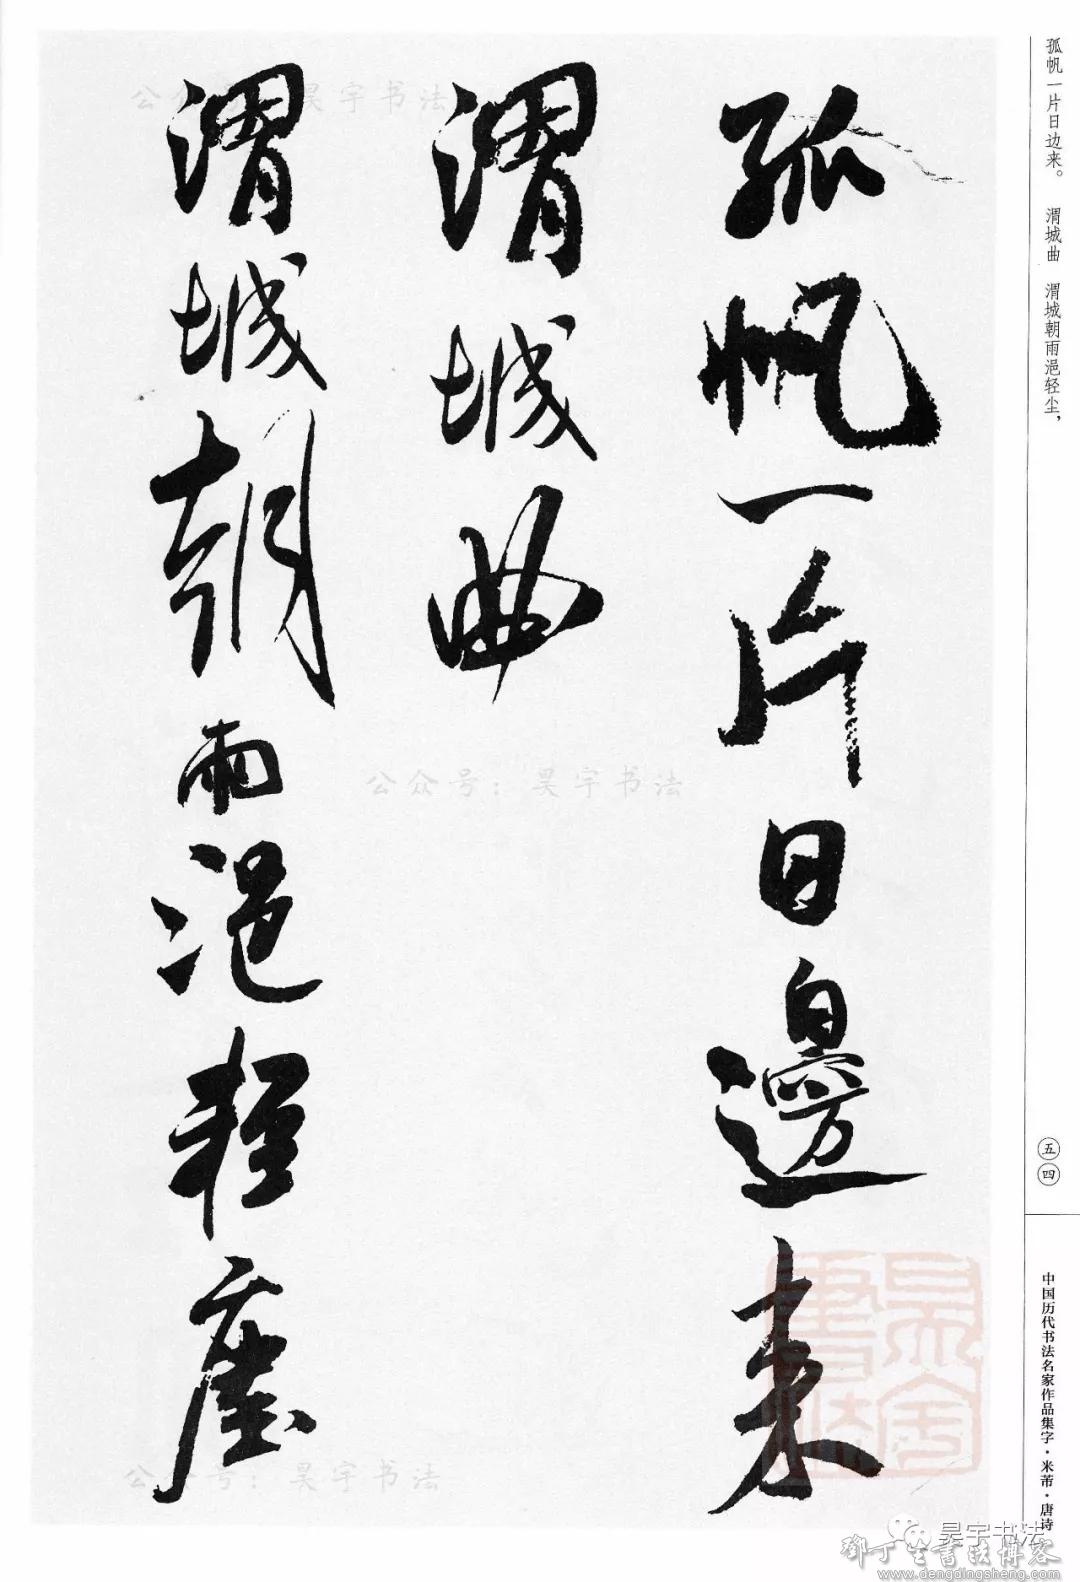 孤帆一片日邊来
渭城曲
渭城朝雨浥輕塵
孤帆一片日边来。 渭城曲 渭城朝雨浥轻尘，
五四
中国历代书法名家作品集字·米芾·唐诗
公众号：昊宇书法
公众号：昊宇书法
公众号：昊宇书法
昊宇書法
昊宇书法
鄧丁生書法博客
www.dengdingsheng.com